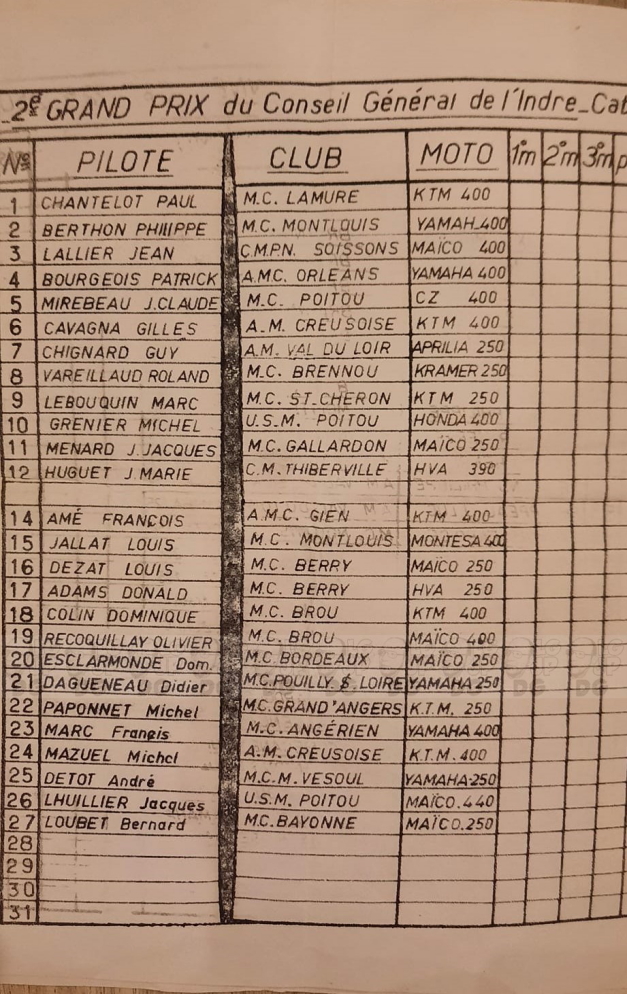 2e GRAND PRIX du Conseil Général de l'Indre_Cat
Nos PILOTE CLUB MOTO 1°m 2°m 3°m p
1 CHANTELOT PAUL M.C. LAMURE KTM 400
2 BERTHON PHIIIPPE M.C. MONTLOUIS YAMAH_400
3 LALLIER JEAN C.M.P.N. SOISSONS MAÏCO 400
4 BOURGEOIS PATRICK A.M.C. ORLEANS YAMAHA 400
5 MIREBEAU J.CLAUDE M.C. POITOU CZ 400
6 CAVAGNA GILLES A.M. CREUSOISE KTM 400
7 CHIGNARD GUY A.M. VAL DU LOIR APRILIA 250
8 VAREILLAUD ROLAND M.C. BRENNOU KRAMER 250
9 LEBOUQUIN MARC M.C. ST.CHERON KTM 250
10 GRENIER MICHEL U.S.M. POITOU HONDA 400
11 MENARD J.JACQUES M.C. GALLARDON MAÏCO 250
12 HUGUET J.MARIE C.M. THIBERVILLE HVA 390
14 AMÉ FRANÇOIS A.M.C. GIEN KTM 400
15 JALLAT LOUIS M.C. MONTLOUIS MONTESA 400
16 DEZAT LOUIS M.C. BERRY MAÏCO 250
17 ADAMS DONALD M.C. BERRY HVA 250
18 COLIN DOMINIQUE M.C. BROU KTM 400
19 RECOQUILLAY OLIVIER M.C. BROU MAÏCO 400
20 ESCLARMONDE Dom. M.C. BORDEAUX MAÏCO 250
21 DAGUENEAU Didier M.C. POUILLY S. LOIRE YAMAHA 250
22 PAPONNET Michel M.C. GRAND'ANGERS K.T.M. 250
23 MARC Franęis M.C. ANGÉRIEN YAMAHA 400
24 MAZUEL Michel A.M. CREUSOISE K.T.M. 400
25 DETOT André M.C.M. VESOUL YAMAHA-250
26 LHUILLIER Jacques U.S.M. POITOU MAÏCO.440
27 LOUBET Bernard M.C. BAYONNE MAÏCO.250
28
29
30
31